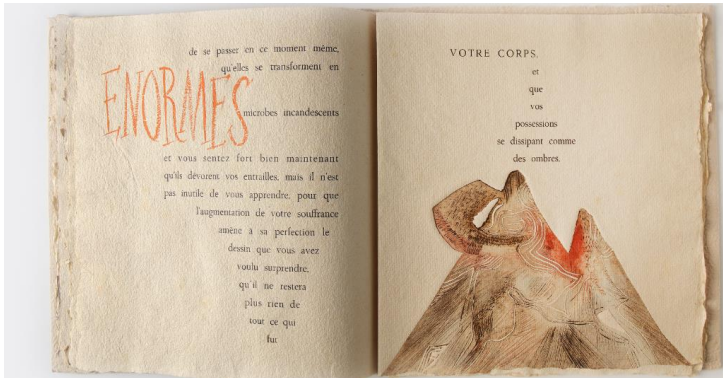 de se passer en ce moment même,
qu'elles se transforment en
ENORMES
microbes incandescents
et vous sentez fort bien maintenant
qu'ils dévorent vos entrailles, mais il n'est
pas inutile de vous apprendre, pour que
l'augmentation de votre souffrance
amène à sa perfection le
dessin que vous avez
voulu surprendre,
qu'il ne restera
plus rien de
tout ce qui
fut
VOTRE CORPS,
et
que
vos
possessions
se dissipant comme
des ombres.